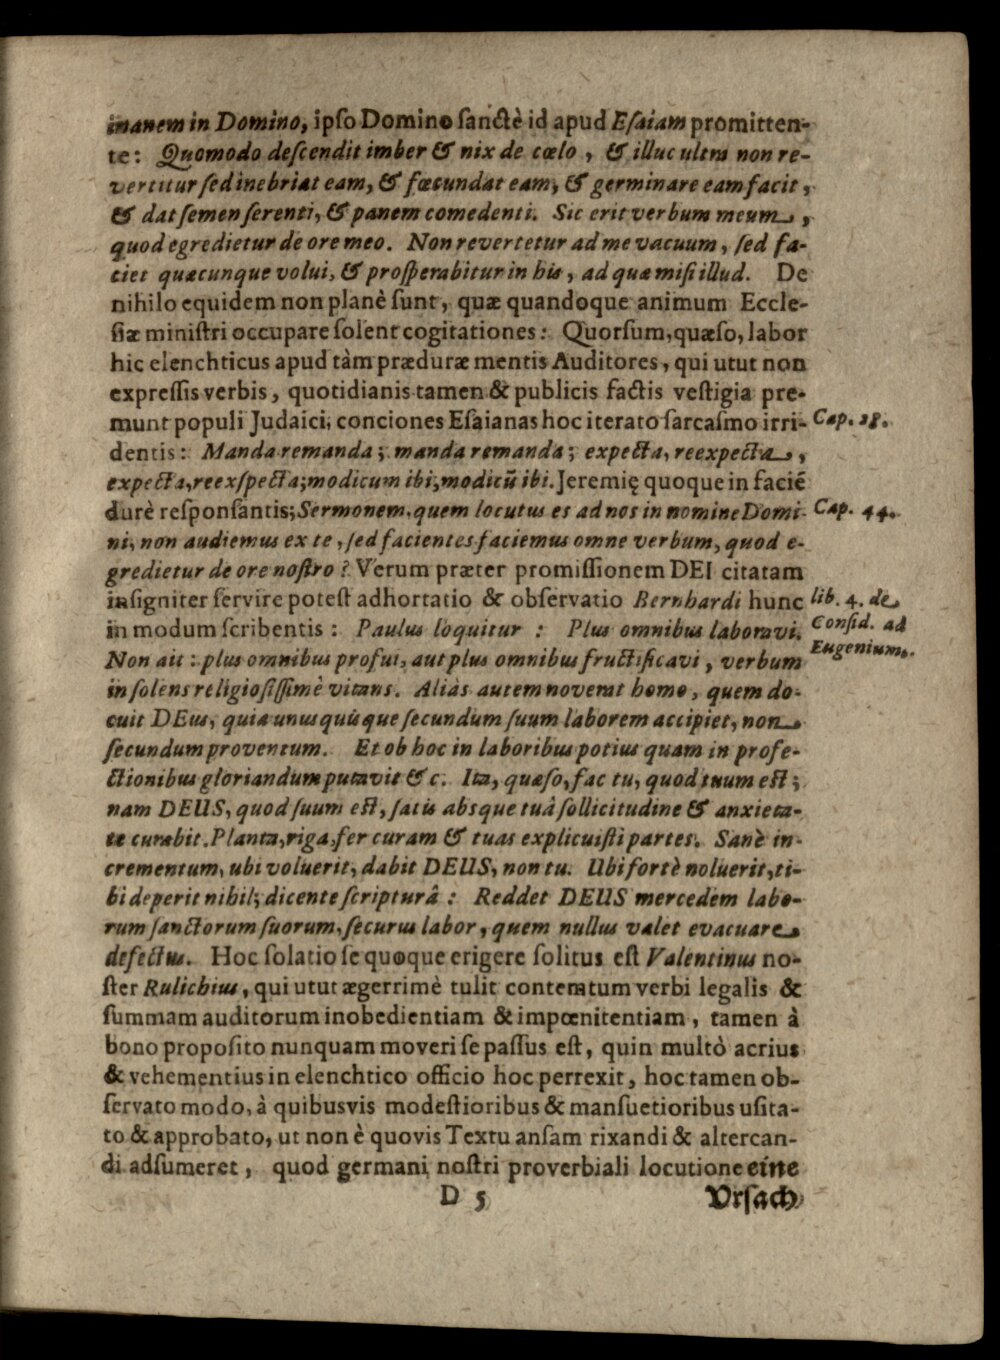 inanem in Domino, ipſo Domino ſanctè id apud Eſaiam promitten-
te: Quomodo deſcendit imber & nix de cœlo, & illuc ultra non re-
vertitur ſed inebriat eam, & fœcundat eam, & germinare eam facit,
& dat ſemen ſerenti, & panem comedenti. Sic erit verbum meum,
quod egredietur de ore meo. Non revertetur ad me vacuum, ſed fa-
ciet quæcunque volui, & proſperabitur in his, ad quæ miſi illud. De
nihilo equidem non planè ſunt, quæ quandoque animum Eccle-
ſiæ miniſtri occupare ſolent cogitationes: Quorſum, quæſo, labor
hic elenchticus apud tàm præduræ mentis Auditores, qui utut non
expreſſis verbis, quotidianis tamen & publicis factis veſtigia pre-
munt populi Judaici, conciones Eſaianas hoc iterato ſarcaſmo irri- Cap. 28.
dentis: Manda remanda; manda remanda; expecta, reexpecta,
expecta, reexſpecta; modicum ibi, modicũ ibi. Jeremię quoque in faciẽ
durè reſponſantis; Sermonem, quem locutus es ad nos in nomine Domi- Cap. 44.
ni, non audiemus ex te, ſed facientes faciemus omne verbum, quod e-
gredietur de ore noſtro? Verum præter promiſſionem DEI citatam
inſigniter ſervire poteſt adhortatio & obſervatio Bernhardi hunc lib. 4. de
in modum ſcribentis: Paulus loquitur: Plus omnibus laboravi. Conſid. ad
Non ait: plus omnibus profui, aut plus omnibus fructificavi, verbum Eugenium.
inſolens religioſiſſimè vitans. Aliàs autem noverat homo, quem do-
cuit DEus, quia unusquisque ſecundum ſuum laborem accipiet, non
ſecundum proventum. Et ob hoc in laboribus potius quam in profe-
ctionibus gloriandum putavit &c. Ita, quæſo, fac tu, quod tuum eſt;
nam DEUS, quod ſuum eſt, ſatis absque tuâ ſollicitudine & anxieta-
te curabit. Planta, riga, fer curam & tuas explicuiſti partes. Sanè in-
crementum, ubi voluerit, dabit DEUS, non tu. Ubi fortè noluerit, ti-
bi deperit nihil; dicente ſcripturâ: Reddet DEUS mercedem labo-
rum ſanctorum ſuorum, ſecurus labor, quem nullus valet evacuare
defectus. Hoc ſolatio ſe quoque erigere ſolitus eſt Valentinus no-
ſter Rulichius, qui utut ægerrimè tulit contemtum verbi legalis &
ſummam auditorum inobedientiam & impœnitentiam, tamen à
bono propoſito nunquam moveri ſe paſſus eſt, quin multò acrius
& vehementius in elenchtico officio hoc perrexit, hoc tamen ob-
ſervato modo, à quibusvis modeſtioribus & manſuetioribus uſita-
to & approbato, ut non è quovis Textu anſam rixandi & altercan-
di adſumeret, quod germani noſtri proverbiali locutione eine
D 5 Urſach